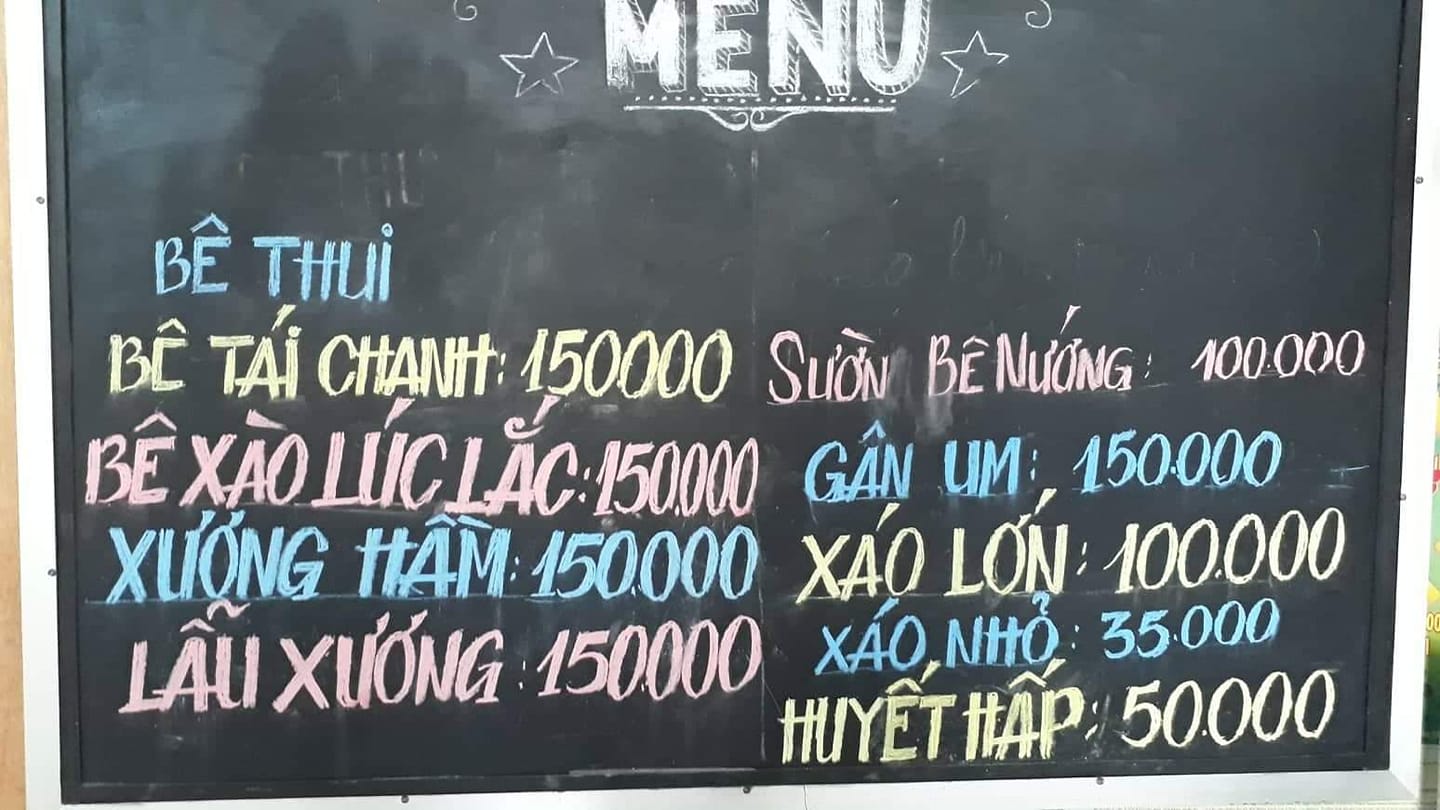 MENU
BÊ THUI
BÊ TÁI CHANH: 150000
BÊ XÀO LÚC LẮC: 150.000
XƯƠNG HẦM: 150.000
LẪU XƯƠNG: 150.000
SƯỜN BÊ NƯỚNG: 100.000
GÂN UM: 150.000
XÁO LỚN: 100.000
XÁO NHỎ: 35.000
HUYẾT HẤP: 50.000